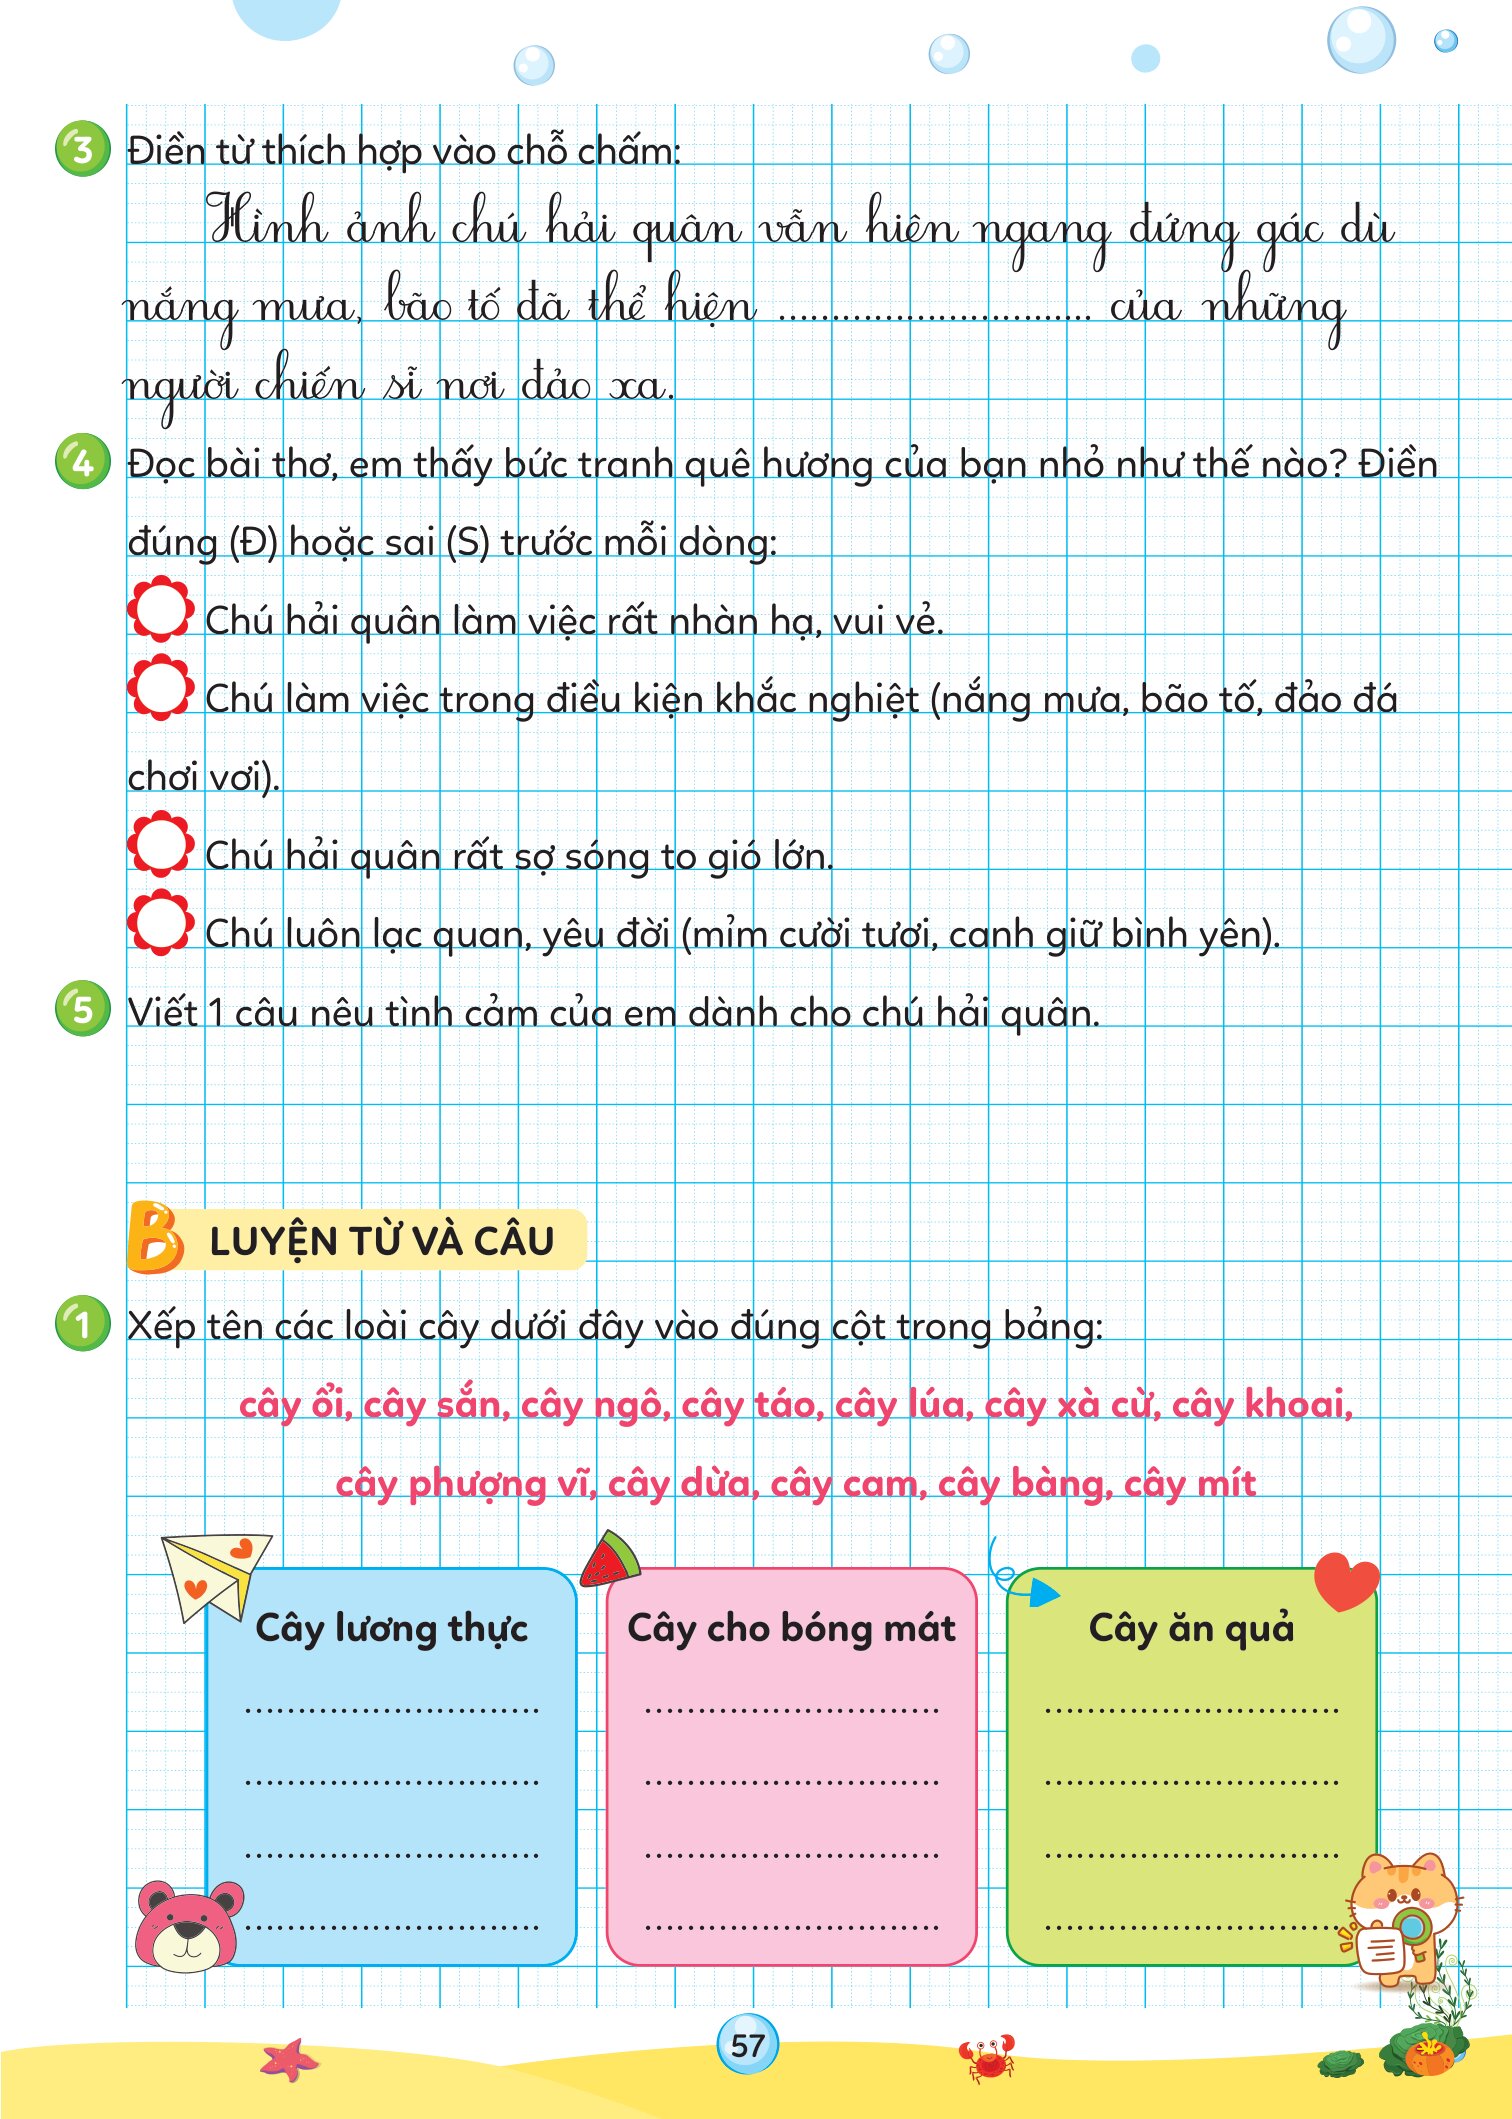 3 Điền từ thích hợp vào chỗ chấm:
Hình ảnh chú hải quân vẫn hiên ngang đứng gác dù
nắng mưa, bão tố đã thể hiện .............................. của những
người chiến sĩ nơi đảo xa.
4 Đọc bài thơ, em thấy bức tranh quê hương của bạn nhỏ như thế nào? Điền
đúng (Đ) hoặc sai (S) trước mỗi dòng:
Chú hải quân làm việc rất nhàn hạ, vui vẻ.
Chú làm việc trong điều kiện khắc nghiệt (nắng mưa, bão tố, đảo đá
chơi vơi).
Chú hải quân rất sợ sóng to gió lớn.
Chú luôn lạc quan, yêu đời (mỉm cười tươi, canh giữ bình yên).
5 Viết 1 câu nêu tình cảm của em dành cho chú hải quân.
B LUYỆN TỪ VÀ CÂU
1 Xếp tên các loài cây dưới đây vào đúng cột trong bảng:
cây ổi, cây sắn, cây ngô, cây táo, cây lúa, cây xà cừ, cây khoai,
cây phượng vĩ, cây dừa, cây cam, cây bàng, cây mít
Cây lương thực Cây cho bóng mát Cây ăn quả
............................ ............................ ............................
............................ ............................ ............................
............................ ............................ ............................
............................ ............................ ............................
57